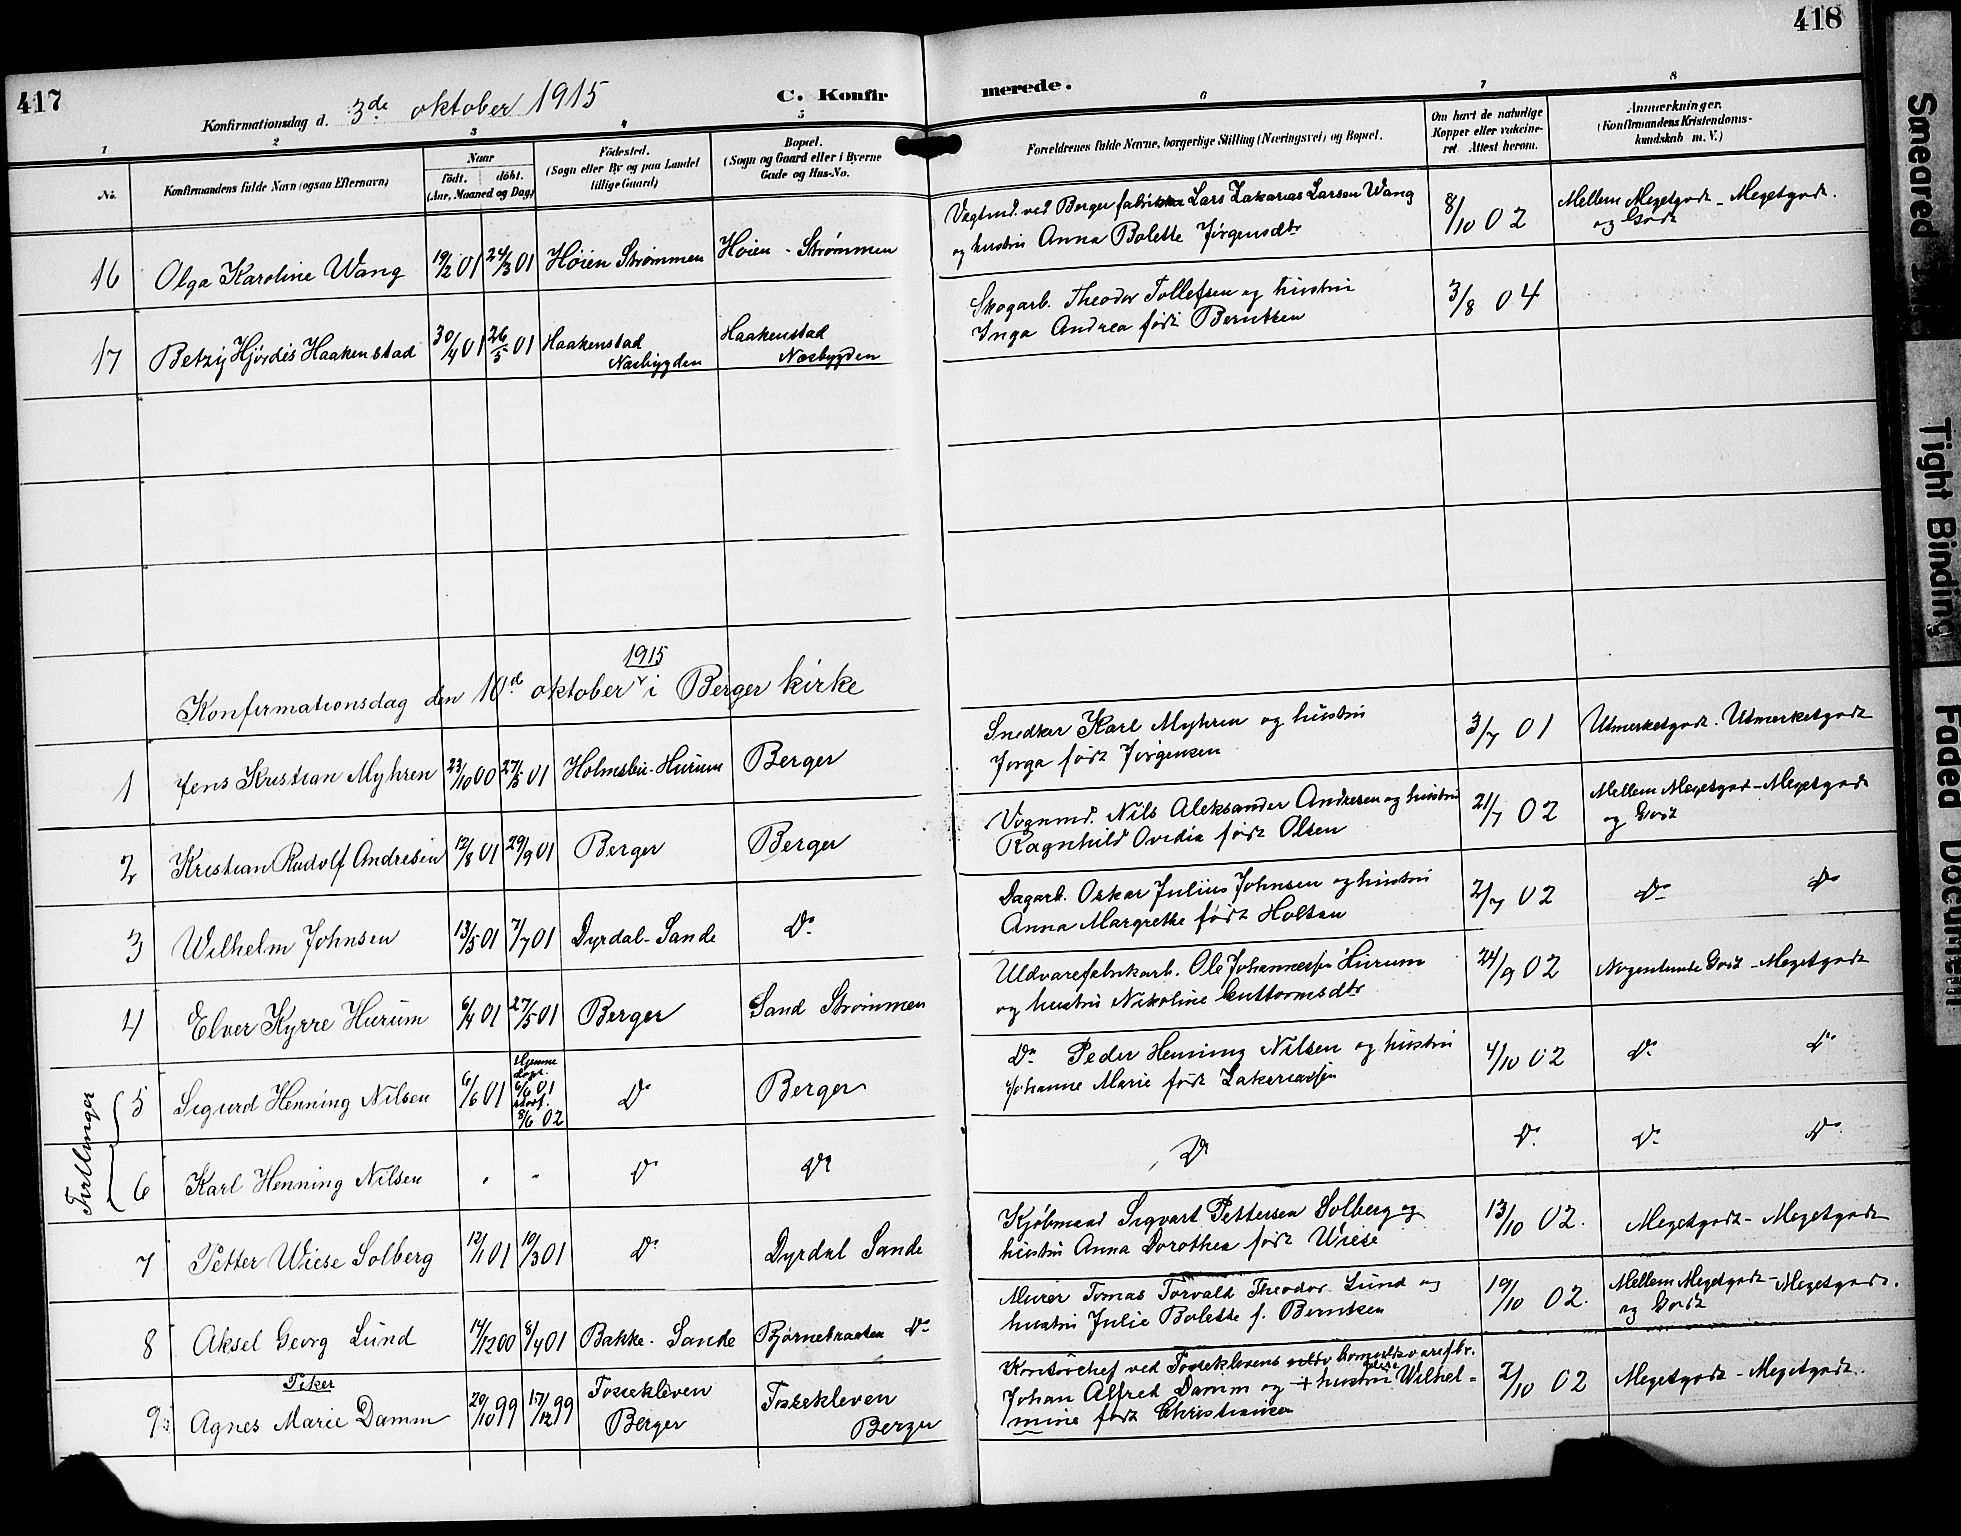 417
418
Konfirmationsdag d. 3de oktober 1915
C. Konfirmerede.
1 2 3 4 5 6 7 8
No.
Konfirmandens fulde Navn (ogsaa Efternavn)
Naar
født. døbt.
(Aar, Maaned og Dag)
Fødested.
(Sogn eller By og paa Landet
tillige Gaard)
Bopæl.
(Sogn og Gaard eller i Byerne
Gade og Hus-No.
Forældrenes fulde Navne, borgerlige Stilling (Næringsvei) og Bopæl.
Om havt de naturlige
Kopper eller vakcine-
ret Attest herom.
Anmærkninger.
(Konfirmandens Kristendoms-
kundskab m. V.)
16 Olga Karoline Wang 19/2 01 24/3 01 Høien Strømmen Høien - Strømmen
Vægtmd. ved Berger fabrikker Lars Zakarias Larsen Wang
og hustru Anna Bolette Jørgensdtr
8/10 02
Mellem Megetgodt - Megetgodt.
og Godt
17 Betzy Hjørdis Haakenstad 30/4 01 26/5 01 Haakenstad
Næsbygden
Haakenstad
Nesbygden
Skogarb. Theodor Tollefsen og hustru
Inga Andrea født Berntsen
3/8 04
1915
Konfirmationsdag den 10d oktober i Berger kirke
1 Jens Kristian Myhren 23/10 00 27/5 01 Holmsbu-Hurum Berger
Snedker Karl Myhren og hustru
Jorga født Jørgensen
3/7 01
Utmerketgodt. Utmerketgodt
2 Kristian Rudolf Andresen 12/8 01 29/9 01 Berger Berger
Vognmd. Nils Aleksander Andresen og hustru
Ragnhild Ovidia født Olsen
21/7 02
Mellem Megetgod - Megetgodt
og Godt
3 Wilhelm Johnsen 13/5 01 7/7 01 Dyrdal-Sande Do
Dagarb. Oskar Julius Johnsen og hustru
Anna Margrethe født Holtan
2/7 02
Do Do
4 Elver Kyrre Hurum 6/4 01 27/5 01 Berger Sand Strømmen
Uldvarefabrikarb. Ole Johannessen Hurum
og hustru Nikoline Guttormsdtr
24/9 02
Nogenlunde Godt - Megetgodt
Tvillinger
5 Sigurd Henning Nilsen 6/6 01
Hjemme
døpt.
6/6 01
stadf.
8/6 02
Do Berger
Do Peder Henning Nilsen og hustru
Johanne Marie født Zakariassen
4/10 02
Do Do
6 Karl Henning Nilsen - - Do Do
Do
Do Do Do
7 Petter Wiese Solberg 12/1 01 10/3 01 Do Dyrdal Sande
Kjøbmand Sigvart Pettersen Solberg og
hustru Anna Dorothea født Wiese
13/10 02.
Megetgodt - Megetgodt
8 Aksel Georg Lund 14/12 00 8/4 01 Bakke - Sande Bjørnebraaten Do
Murer Tomas Torvald Theodor Lund og
hustru Julie Bolette f. Berntsen
19/10 02.
Mellem Megetgodt - Megetgodt.
og Godt
Piker
9 Agnes Marie Damm 20/10 99 17/12 99 Fossekleven
Berger
Fossekleven
Berger
Kontorchef ved Fossekleven bomuldsvarefbr.
Johan Alfred Damm og + hustru Wilhel=
mine født Christiansen
2/10 02
Megetgodt - Megetgodt.
Smeared
Tight Binding
Faded Document